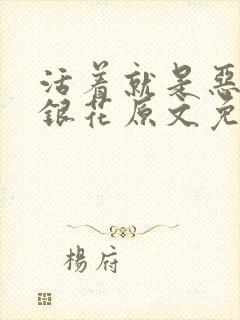 活着就是恶
银花原文免
楊府